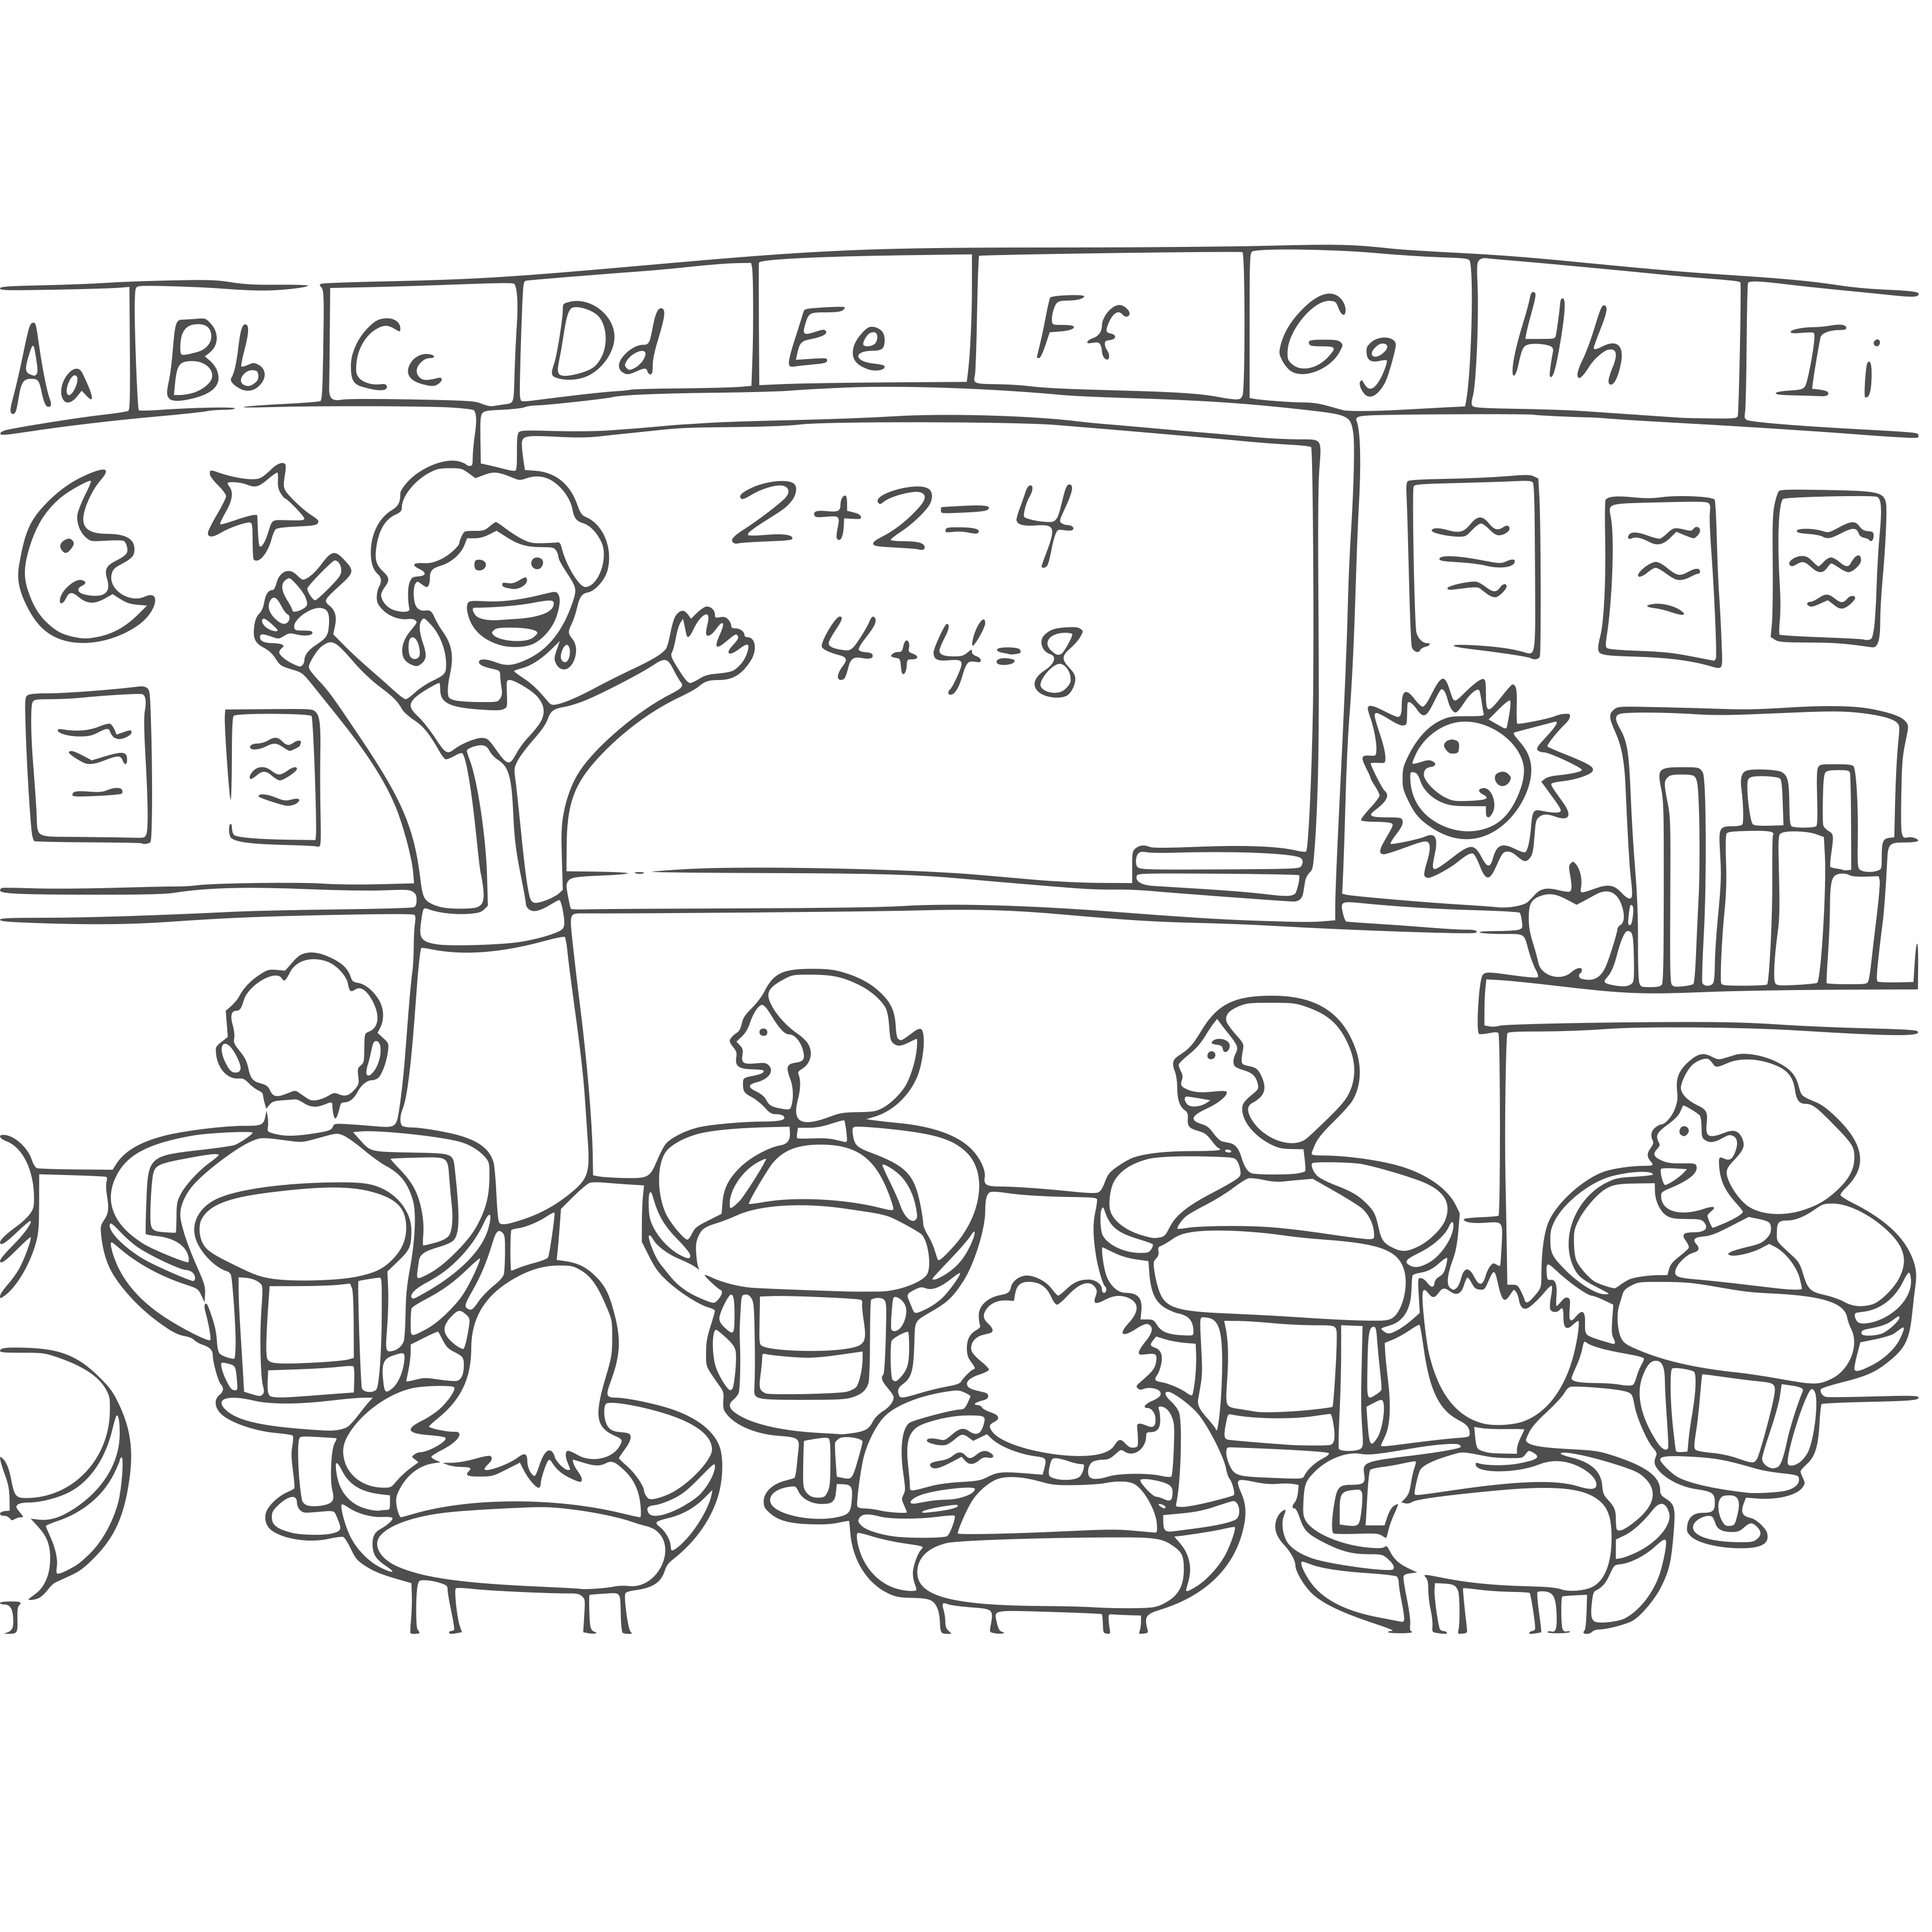 Aa Bb Cc Dd Ee Ff Gg Hh Ii
2+2=4
4+4=8